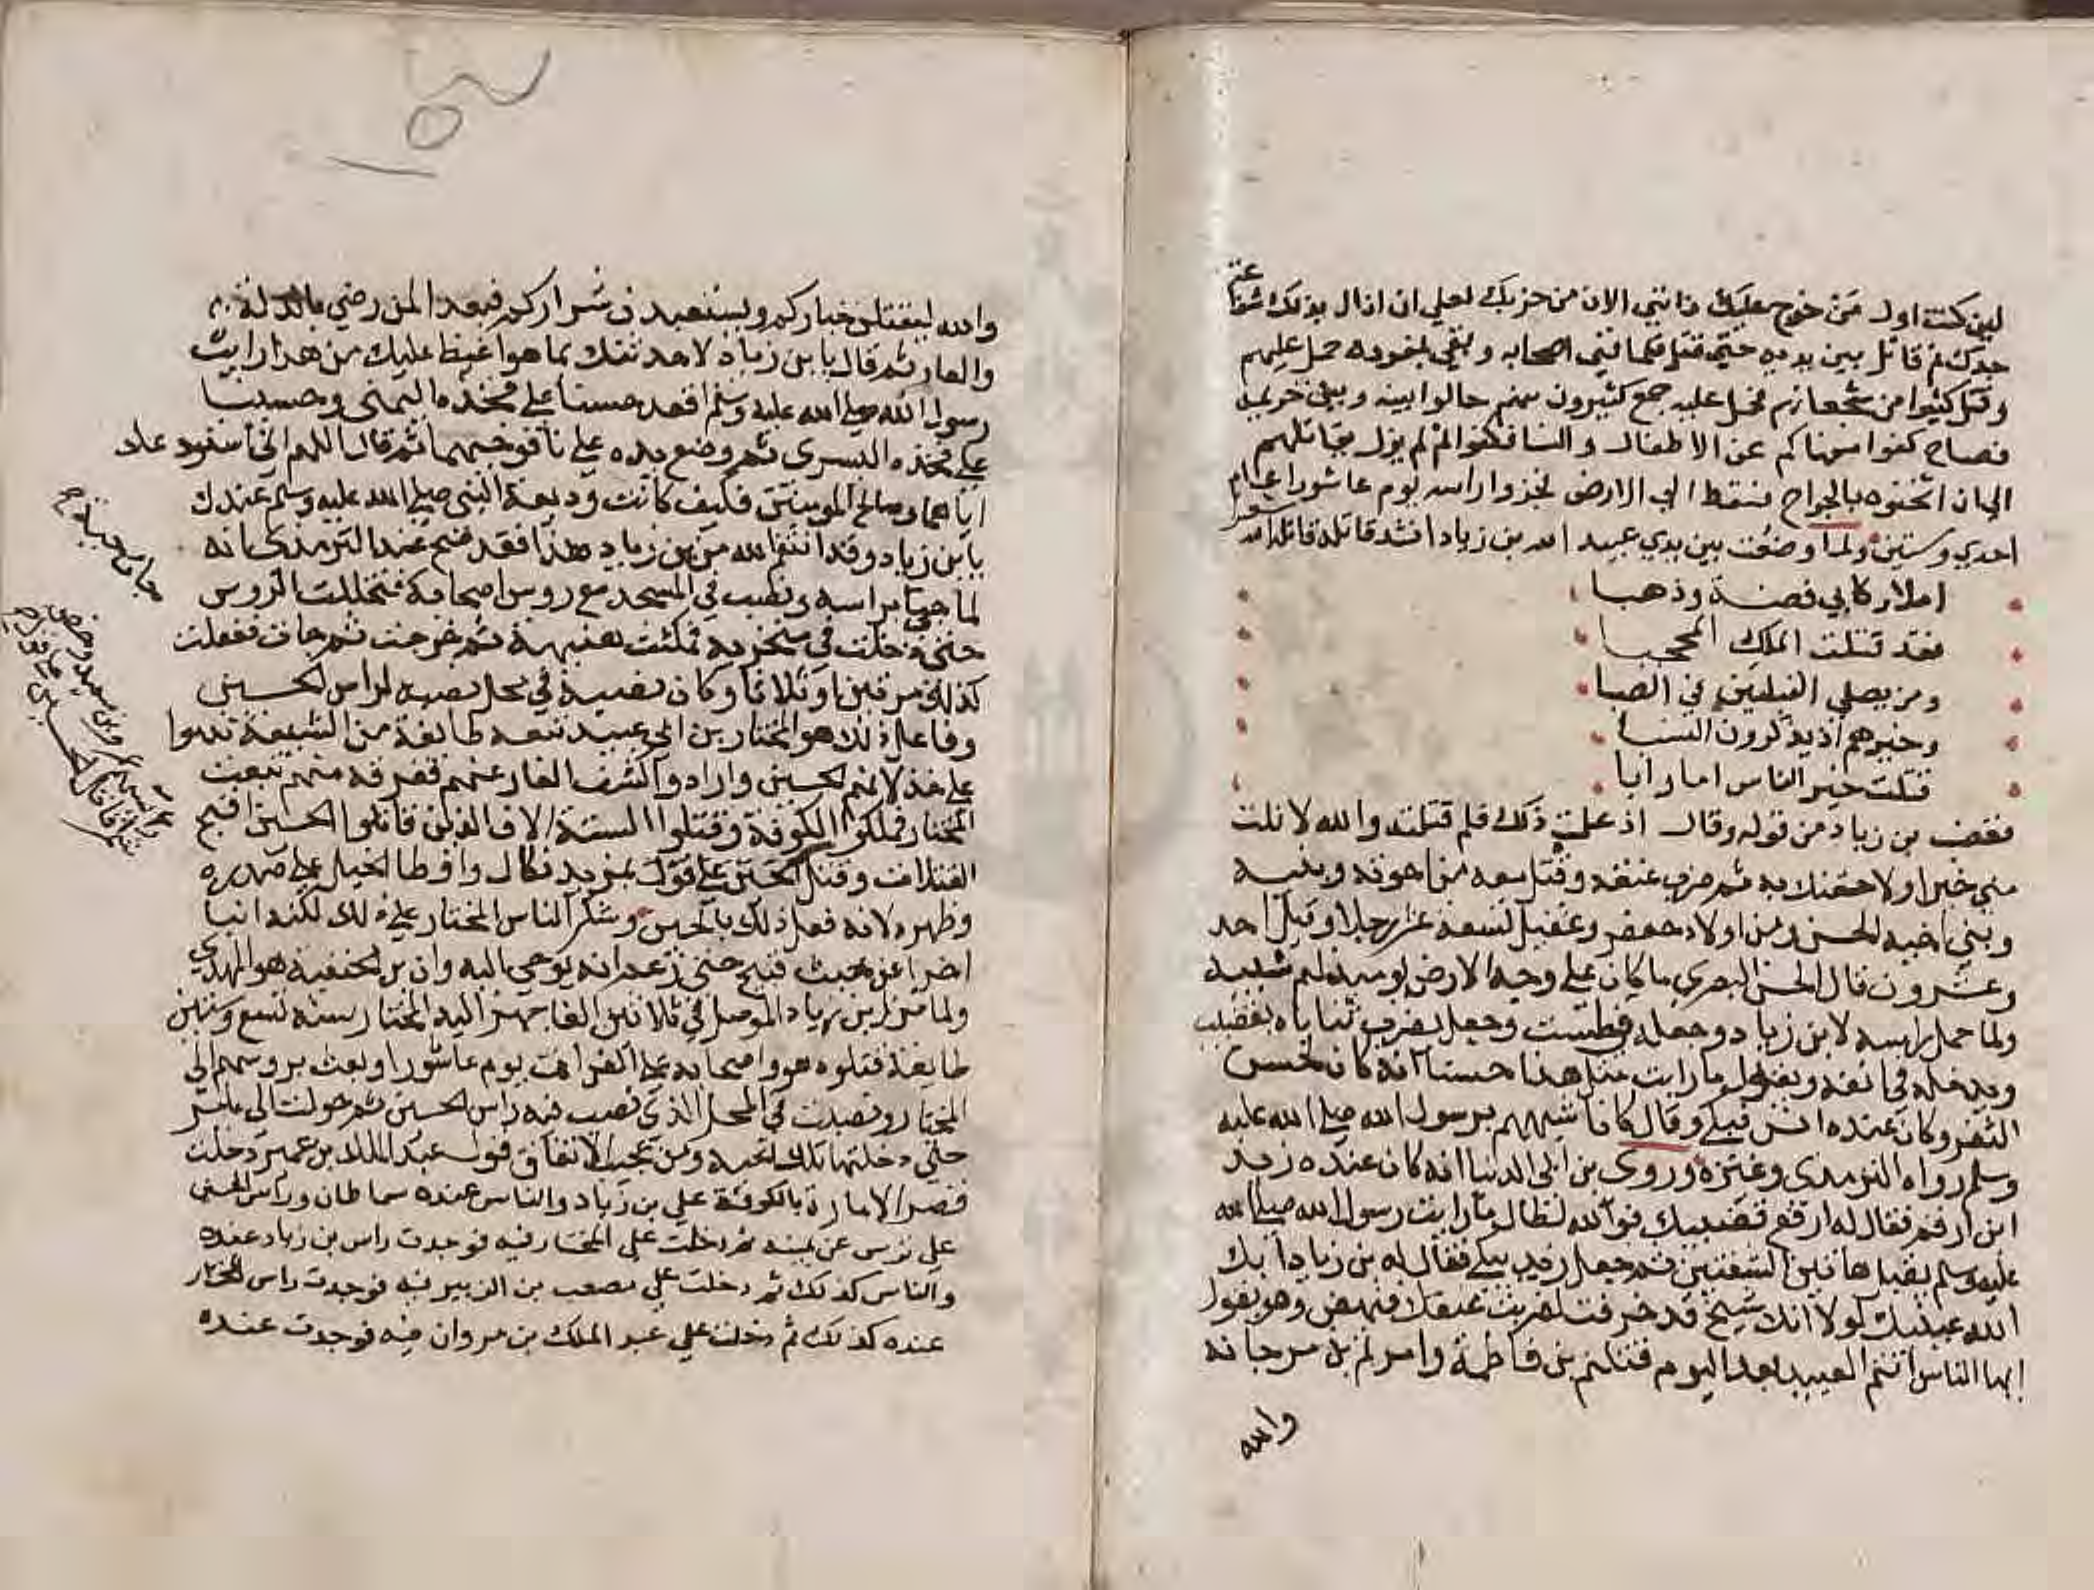 لين كنت اول من خرج عليك فانني الان من حزبك لعلي ان انال بذلك شفاعة
جدك ثم قاتل بين يديه حتى قتل فلما فني اصحابه وبقي بمفرده حمل عليهم
وقتل كثيرا من شجعانهم فحمل عليه جمع كثيرون منهم حالوا بينه وبين حريمه
فصاح كفوا سفهاكم عن الاطفال والنسا فكفوا ثم لم يزل يقاتلهم
الى ان اثخنوه بالجراح فسقط الي الارض فجزوا راسه يوم عاشورا عام
احدي وستين ولما وضعت بين يدي عبيد الله بن زياد انشد قاتله
املا ركابي فضة وذهبا
فقد قتلت الملك المحجبا
ومن يصلي القبلتين في الصبا
وخيرهم اذ يذكرون النسبا
قتلت خير الناس اما وابا
فغضب بن زياد من قوله وقال اذ علمت ذلك فلم قتلته والله لا نلت
مني خيرا ولا لحقنك به ثم ضرب عنقه وقتل معه من اخوته وبنيه
وبني اخيه الحسن ومن اولاد جعفر وعقيل تسعة عشر رجلا وقيل احد
وعشرون قال الحسن البصري ما كان على وجه الارض يوميذ لهم شبيه
ولما حمل راسه لابن زياد وجعله في طشت وجعل يضرب ثناياه بقضيب
ويدخله في انفه ويقول ما رايت مثل هذا حسنا انه كان لحسن
الثغر وكان عنده انس فبكي وقال كان اشبههم برسول الله صلى الله عليه
وسلم رواه الترمذي وغيره وروي بن ابي الدنيا انه كان عنده زيد
ابن ارقم فقال له ارفع قضيبك فوالله لطال ما رايت رسول الله صلى الله
عليه وسلم يقبل ما بين الشفتين ثم جعل زيد يبكي فقال له بن زياد ابك
الله عينيك لولا انك شيخ قد خرفت لضربت عنقك فنهض وهو يقول
ايها الناس انتم العبيد بعد اليوم قتلتم بن فاطمة وامرتم بن مرجانه
والله
والله ليقتلن خياركم ويستعبدن شراركم فبعدا لمن رضي بالذلة
والعار ثم قال يا بن زياد لاحدثنك بما هو اغيظ عليك من هذا رايت
رسول الله صلى الله عليه وسلم اقعد حسنا على فخذه اليمنى وحسينا
على فخذه اليسرى ثم وضع يده على يافوخيهما ثم قال اللهم اني استودعك
اياهما وصالح المومنين فكيف كانت وديعة النبي صلى الله عليه وسلم عندك
يا بن زياد وقد انتقم الله من بن زياد هذا فقد صح عند الترمذي انه
لما جي براسه ونصب في المسجد مع روس اصحابه فتخللت الروس
حتى دخلت في منخريه فمكثت هنيهة ثم خرجت ثم جات ففعلت
كذلك مرتين او ثلاثا وكان نصبه في محل نصبه لراس الحسين
وفاعل ذلك هو المختار بن ابي عبيد تبعه طايفة من الشيعة ندموا
على خذلانهم الحسين وارادوا كشف العار عنهم ففرقه منهم تبعت
المختار فملكوا الكوفة وقتلوا الستة الاف الذين قاتلوا الحسين اقبح
القتلات وقتل على قول بمزيد نكال واوطا الخيل على صدره
وظهره لانه فعل ذلك بالحسين وشكر الناس المختار على ذلك لكنه انبا
اخرا عن خبث قبيح حتى زعم انه يوحي اليه وان بن الحنفية هو المهدي
ولما نزل بن زياد الموصل في ثلاثين الفا جهز اليه المختار سنة تسع وستين
طايفة قتلوه هو واصحابه على الفرات يوم عاشورا وبعث بروسهم الى
المختار ونصبت في المحل الذي نصب فيه راس الحسين ثم حولت الى
حتى دخلتها تلك الحية ومن عجيب الاتفاق قول عبد الملك بن عمير دخلت
قصر الامارة بالكوفة على بن زياد والناس عنده سماطان وراس الحسين
على ترس عن يمينه ثم دخلت على المختار فيه فوجدت راس بن زياد عنده
والناس كذلك ثم دخلت علي مصعب بن الزبير فيه فوجدت راس المختار
عنده كذلك ثم دخلت علي عبد الملك بن مروان فيه فوجدت عنده
جات حية